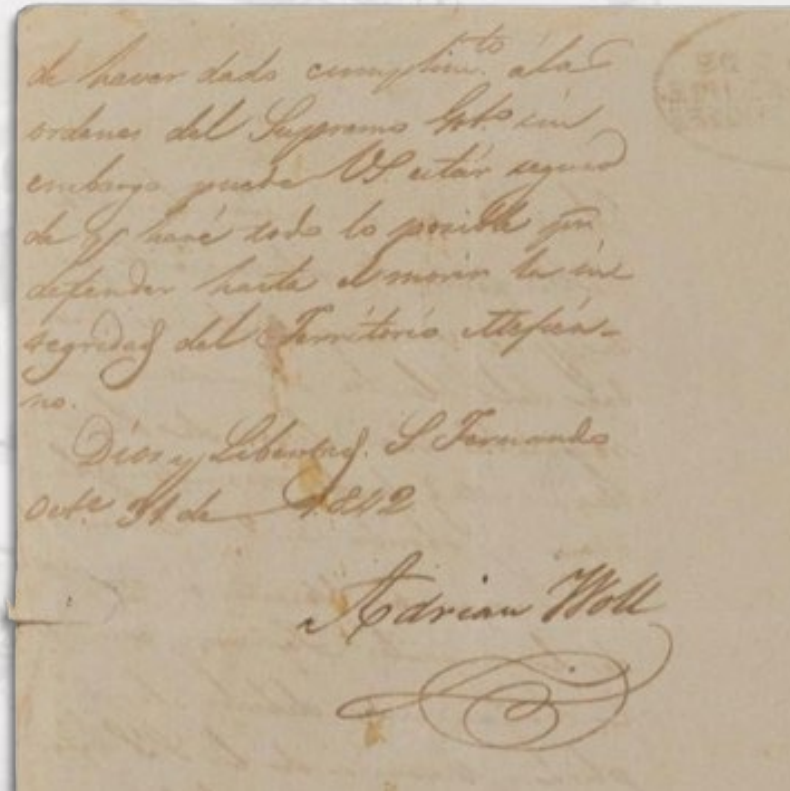 de haver dado cumplim.to á las
ordenes del Supremo Gob.o sin
embargo puede VS estár seguro
de q haré todo lo posible por
defender hasta el morir la in
tegridad del Territorio Mejica-
no.
Dios y Libertad. S. Fernando
Oct.e 31 de 1842
Adrian Woll